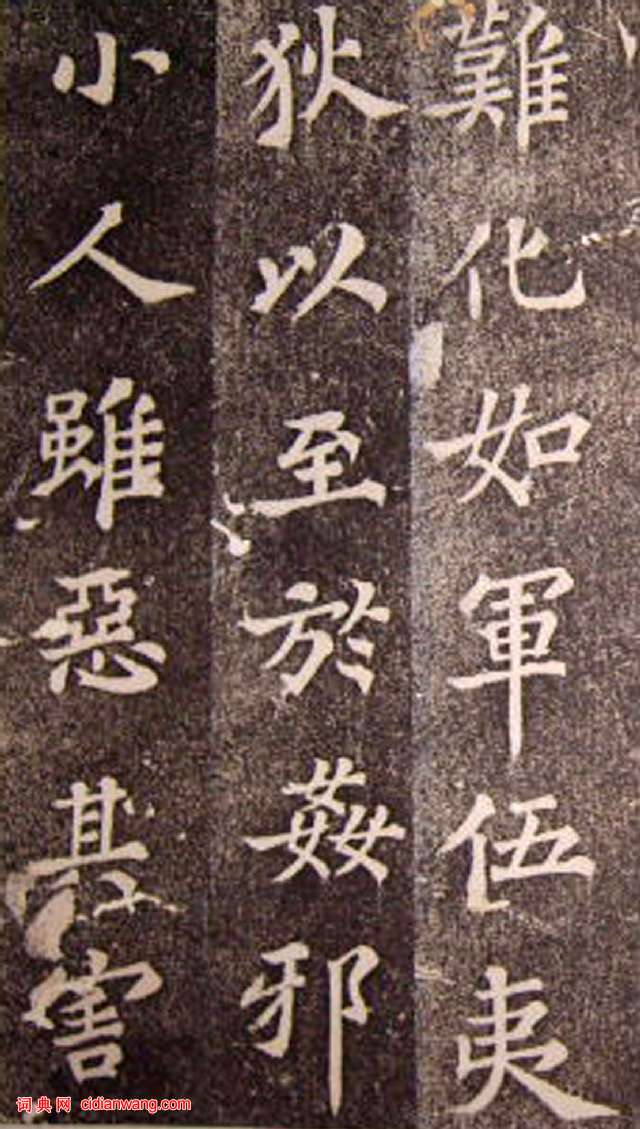 難化如軍伍夷
狄以至於姦邪
小人雖惡其害
词典网 cidianwang.com